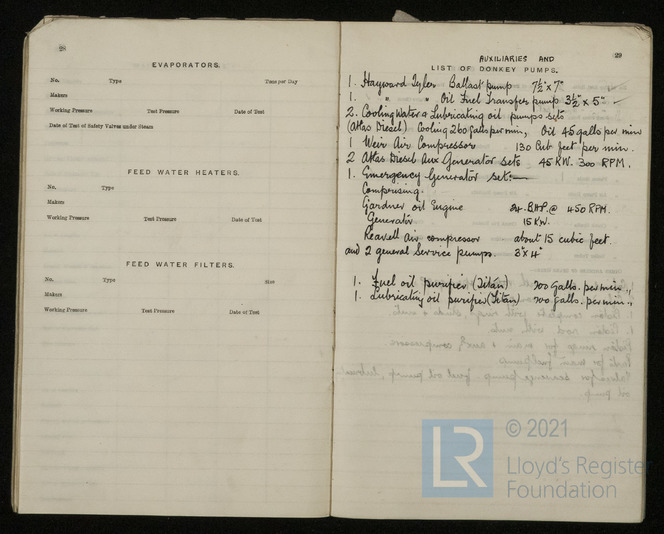 28
EVAPORATORS.
No. Type Tons per Day
Makers
Working Pressure Test Pressure Date of Test
Date of Test of Safety Valves under Steam
FEED WATER HEATERS.
No. Type
Makers
Working Pressure Test Pressure Date of Test
FEED WATER FILTERS.
No. Type Size
Makers
Working Pressure Test Pressure Date of Test
29
AUXILIARIES AND
LIST OF DONKEY PUMPS.
1. Hayward Tyler Ballast pump 7½" x 7"
1. " " Oil Fuel Transfer pump 3½" x 5"
2. Cooling Water & Lubricating oil pumps sets
(Atlas Diesel) Cooling 260 galls per min, Oil 45 galls per min
1 Weir Air Compressor 130 Cub feet per min.
2 Atlas Diesel Aux Generator sets 45 KW. 300 RPM.
1. Emergency Generator set:—
Comprising.
Gardner oil Engine 24. BHP. @ 450 RPM.
Generator 15 KW.
Reavell Air compressor about 15 cubic feet.
and 2 general Service pumps. 3" x 4"
1. Fuel oil purifier (Titan) galls. per min.,
1. Lubricating oil purifier (Titan) galls. per min.,
© 2021
LR
Lloyd's Register
Foundation